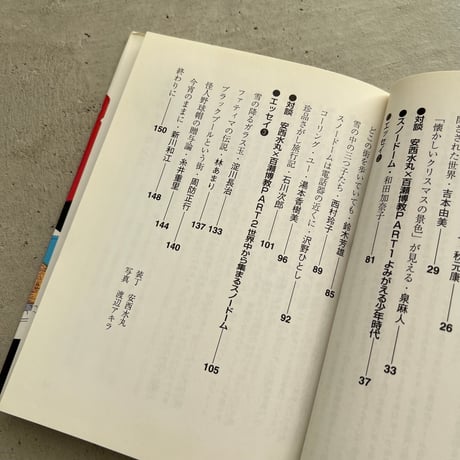 秋元康 26
吉本由美 29
「懐かしいクリスマスの景色」が見える・泉麻人 33
●対談 安西水丸×百瀬博教PART1よみがえる少年時代 37
●スノードーム
●エッセイ❷
和田加奈子 81
どこの街を歩いていても・鈴木芳雄 85
雪の中の三つ子たち・西村玲子 89
スノードームは電話器の近くに・沢野ひとし 92
コーリング・ユー・湯本香樹実 96
珍品さがし旅行記・石川次郎 101
●対談 安西水丸×百瀬博教PART2世界中から集まるスノードーム 105
●エッセイ❸
雪の降るガラス玉・淀川長治 133
ファティマの伝説・林あまり 137
ブラックプールという街・周防正行 140
怪人野球帽の贈与論・糸井重里 144
今宵のままに・新川和江 148
終わりに 150
装丁 安西水丸
写真 渡辺アキラ